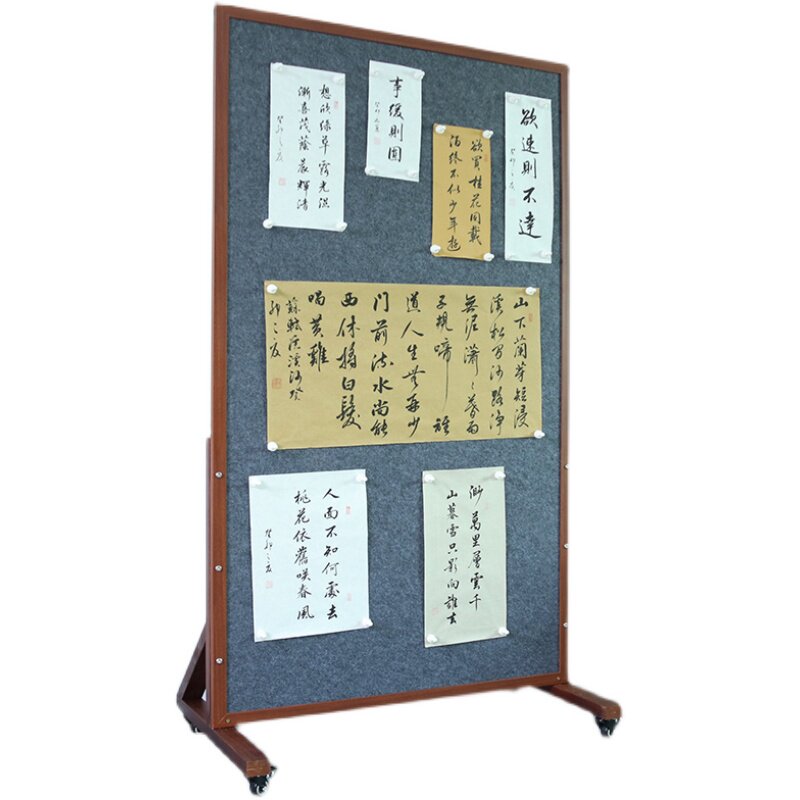 漸喜茂蔭晨輝清
癸卯之夏
事緩則圓
欲買桂花同載
酒終不似少年遊
欲速則不達
癸卯之夏
山下蘭芽短浸
溪松間沙路淨
無泥瀟々暮雨
子規啼 誰
道人生無再少
門前流水尚能
西休將白髮
唱黃雞
蘇軾浣溪沙癸
卯之夏
人面不知何處去
桃花依舊咲春風
癸卯之夏
渺萬里層雲千
山暮雪只影向誰去